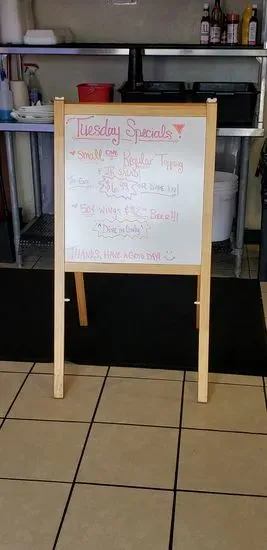 Tuesday Specials
Small one Regular Topping
To Go $6.99 or Dine in!
50¢ wings & Beer!!!
Dine in only
THANKS, HAVE A GOOD DAY!